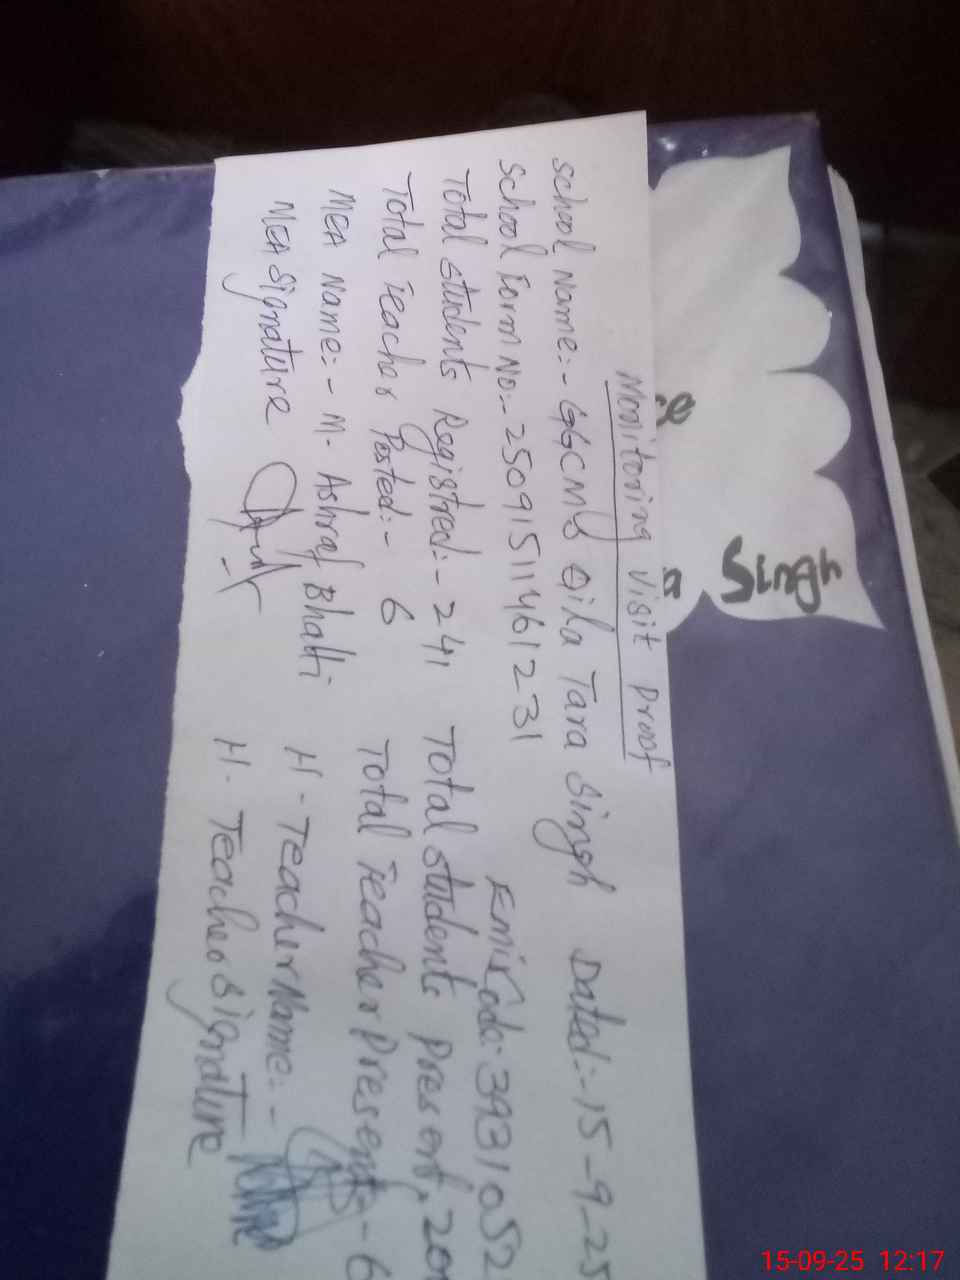 Monitoring Visit Proof
School Name:- GGCMS Qila Tara Singh Dated:- 15-9-25
School Form No:- 25091511461231 Emis Code: 3931052
Total Students Registred:- 241 Total Students Present, 20
Total Teacher Posted:- 6 Total Teacher Present - 6
MEA Name:- M. Ashraf Bhatti H-Teacher Name:-
MEA Signature H. Teacher Signature
Singh
15-09-25 12:17